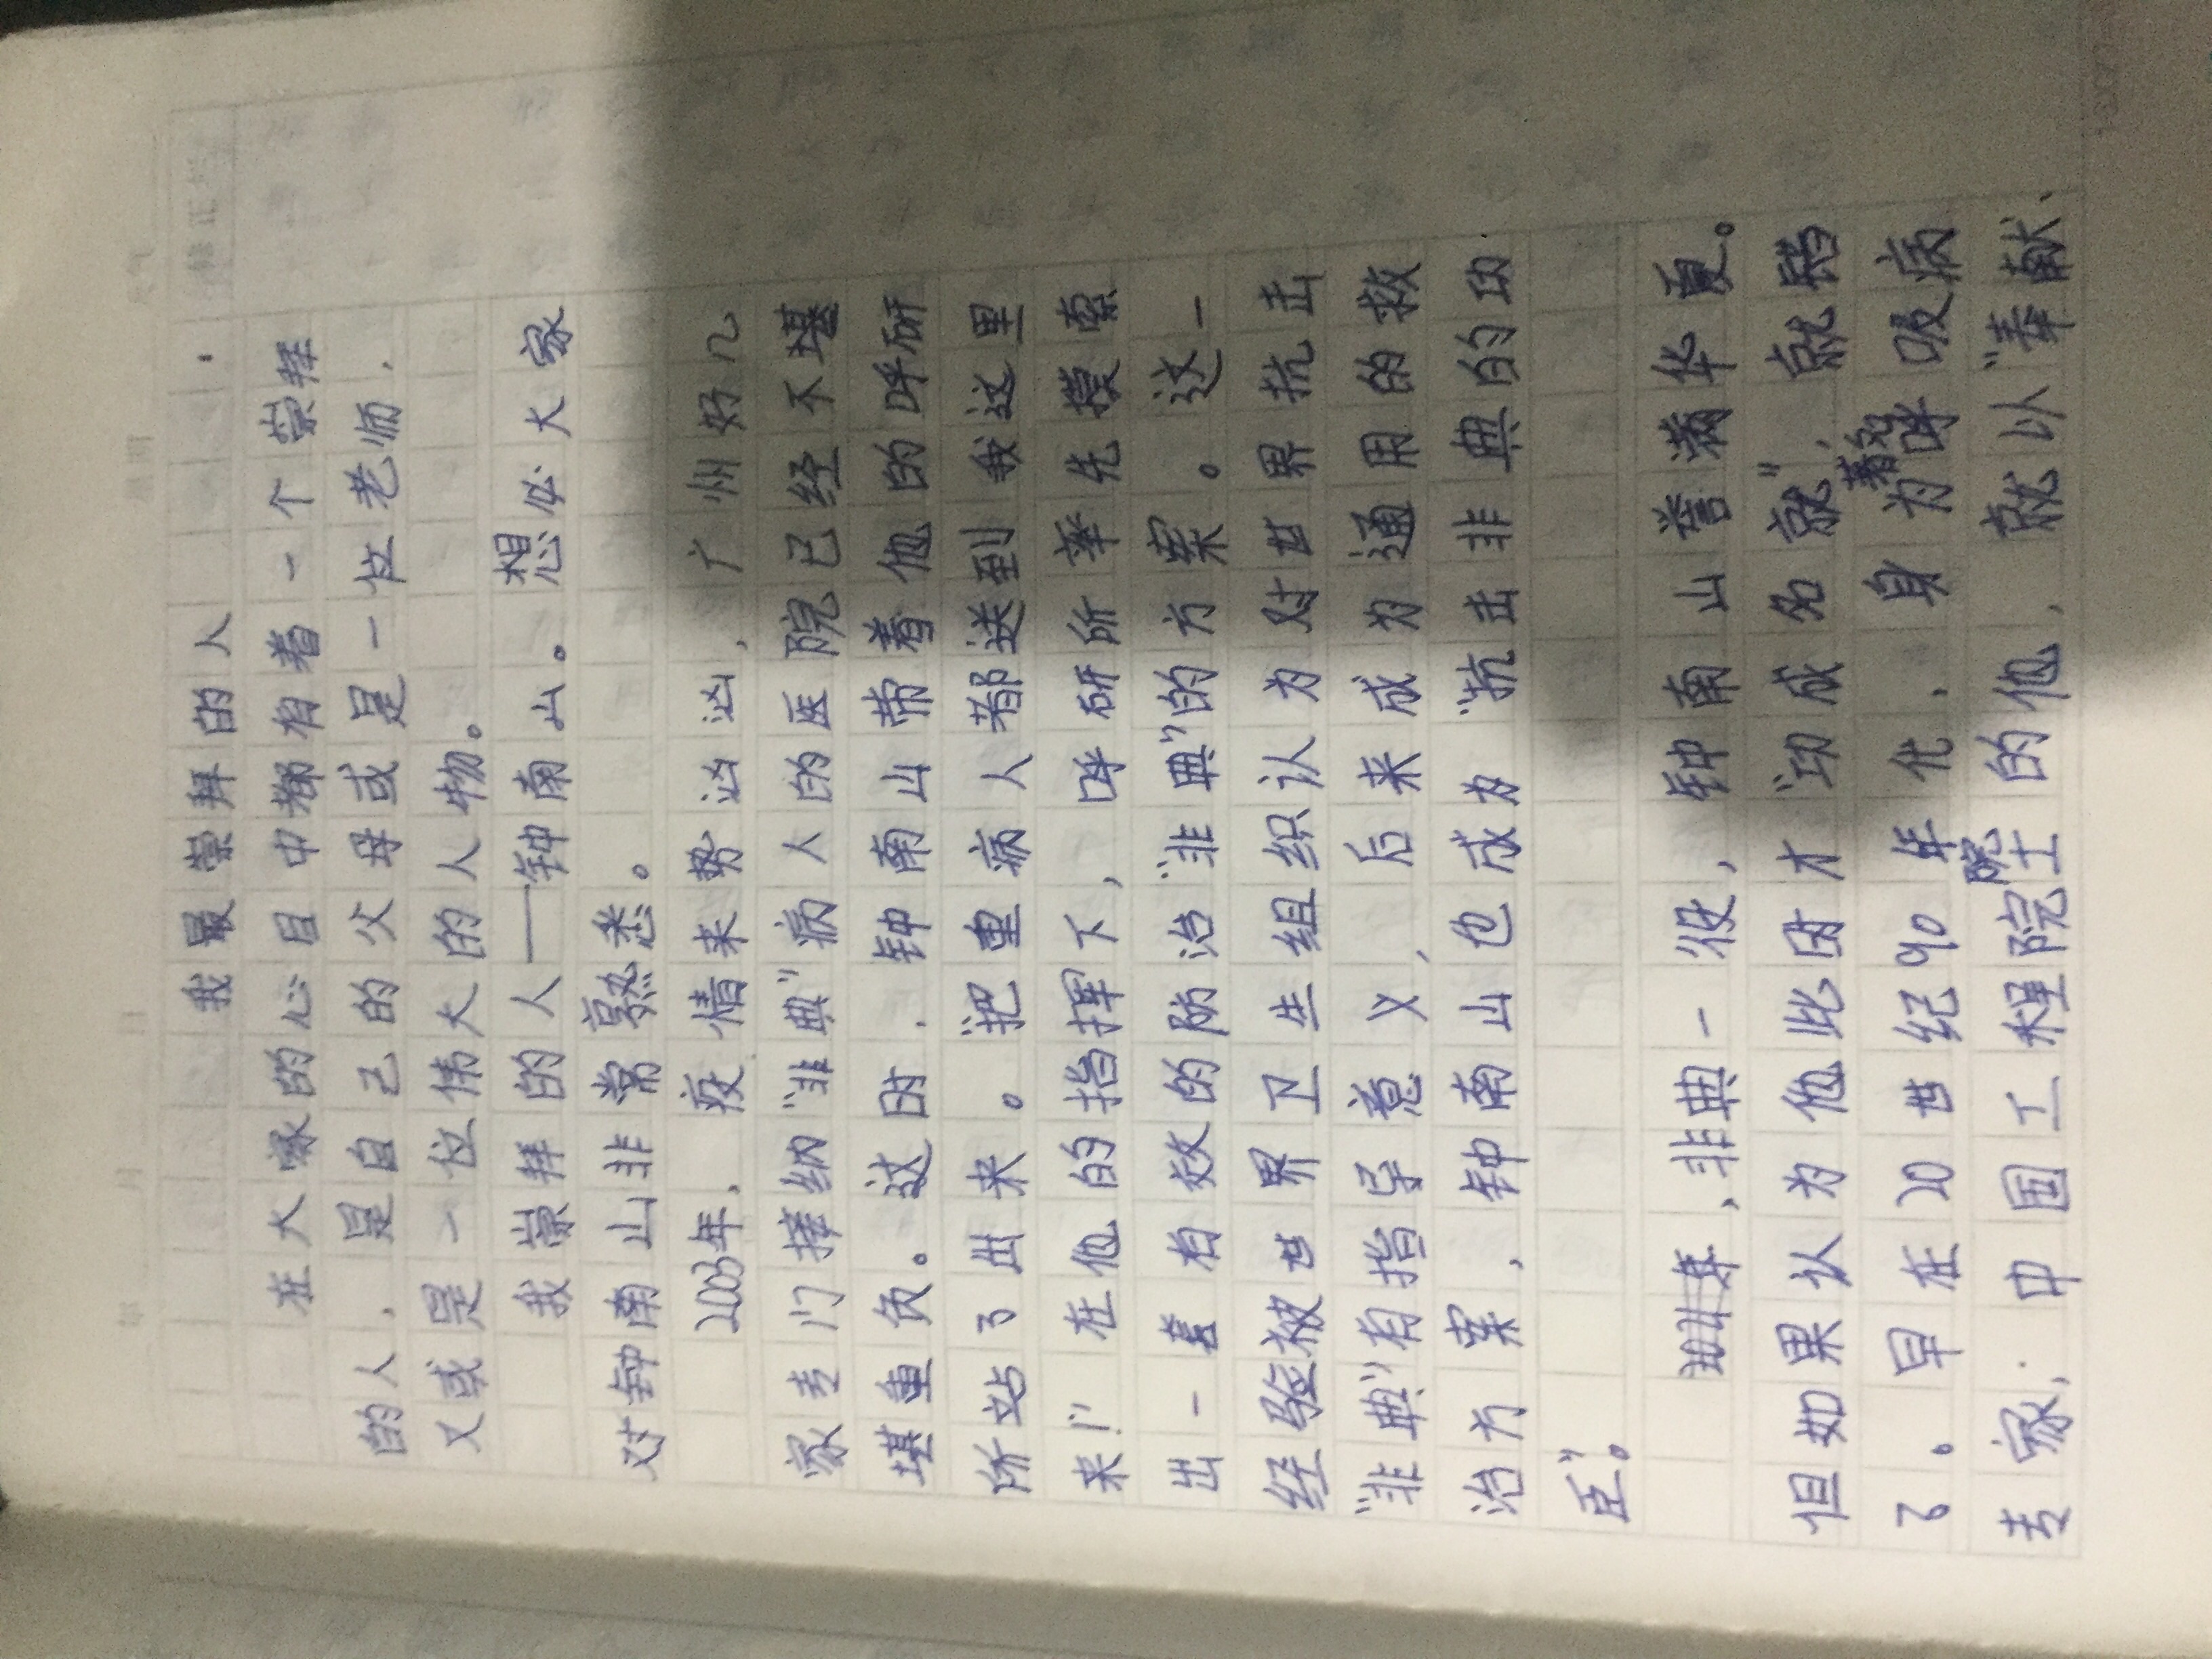 我最崇拜的人
在大家的心目中都有着一个崇拜
的人，是自己的父母或是一位老师，
又或是一位伟大的人物。
我崇拜的人——钟南山。想必大家
对钟南山非常熟悉。
2003年，疫情来势汹汹，广州好几
家专门接纳“非典”病人的医院已经不堪
堪重负。这时，钟南山带着他的呼研
所站了出来。“把重病人都送到我这里
来！”在他的指挥下，呼研所率先摸索
出一套有效的防治“非典”的方案。这一
经验被世界卫生组织认为对世界抗击
“非典”有指导意义，后来成为通用的救
治方案，钟南山也成为“抗击非典的功
臣”。
非典一役，钟南山誉满华夏。
但如果认为他此因才“功成名就”，就错
了。早在20世纪90年代，身为著名呼吸病
专家，中国工程院院士的他，就以“奉献、